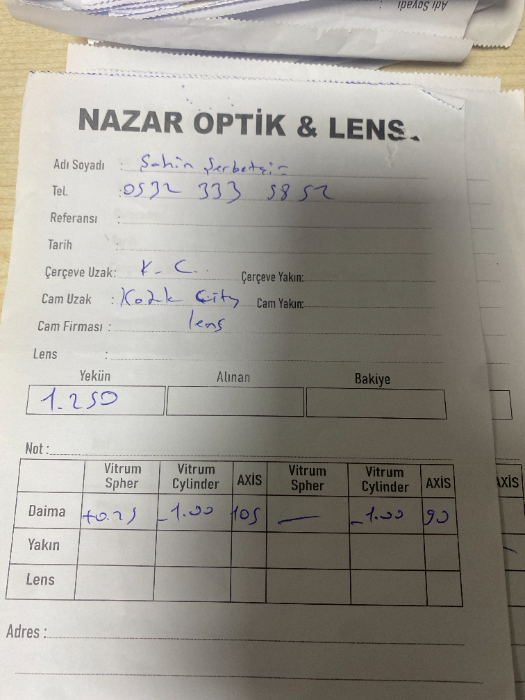 Adı Soyadı
NAZAR OPTİK & LENS.
Adı Soyadı : Şahin Şerbetçi
Tel. : 0532 333 5852
Referansı :
Tarih :
Çerçeve Uzak: K-C. Çerçeve Yakın:
Cam Uzak : City Cam Yakın:
Cam Firması : lens
Lens :
Yekün Alınan Bakiye
1.250
Not :
Vitrum Spher Vitrum Cylinder AXİS Vitrum Spher Vitrum Cylinder AXİS AXİS
Daima +0.25 -1.00 105 — -1.00 90
Yakın
Lens
Adres :